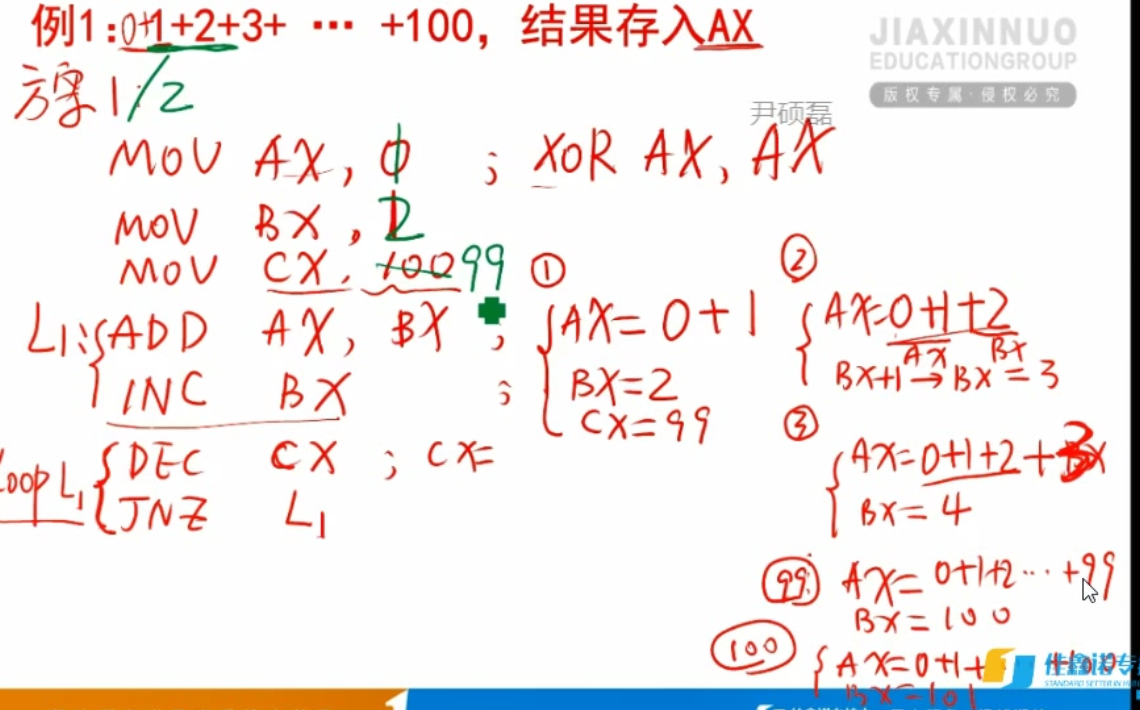 例1:0+1+2+3+ … +100，结果存入AX
JIAXINNUO
EDUCATIONGROUP
版权专属·侵权必究
尹硕磊
方案1/2
MOV AX, 0 ; XOR AX, AX
MOV BX, 2
MOV CX, 100 99
L1: ADD AX, BX ;
INC BX ;
LOOP L1 DEC CX ; CX=
JNZ L1
①
AX=0+1
BX=2
CX=99
②
AX=0+1+2
AX BX
BX+1→BX=3
③
AX=0+1+2+3
BX=4
99 AX=0+1+2…+99
BX=100
100 AX=0+1+ +100
BX=101
佳鑫诺专